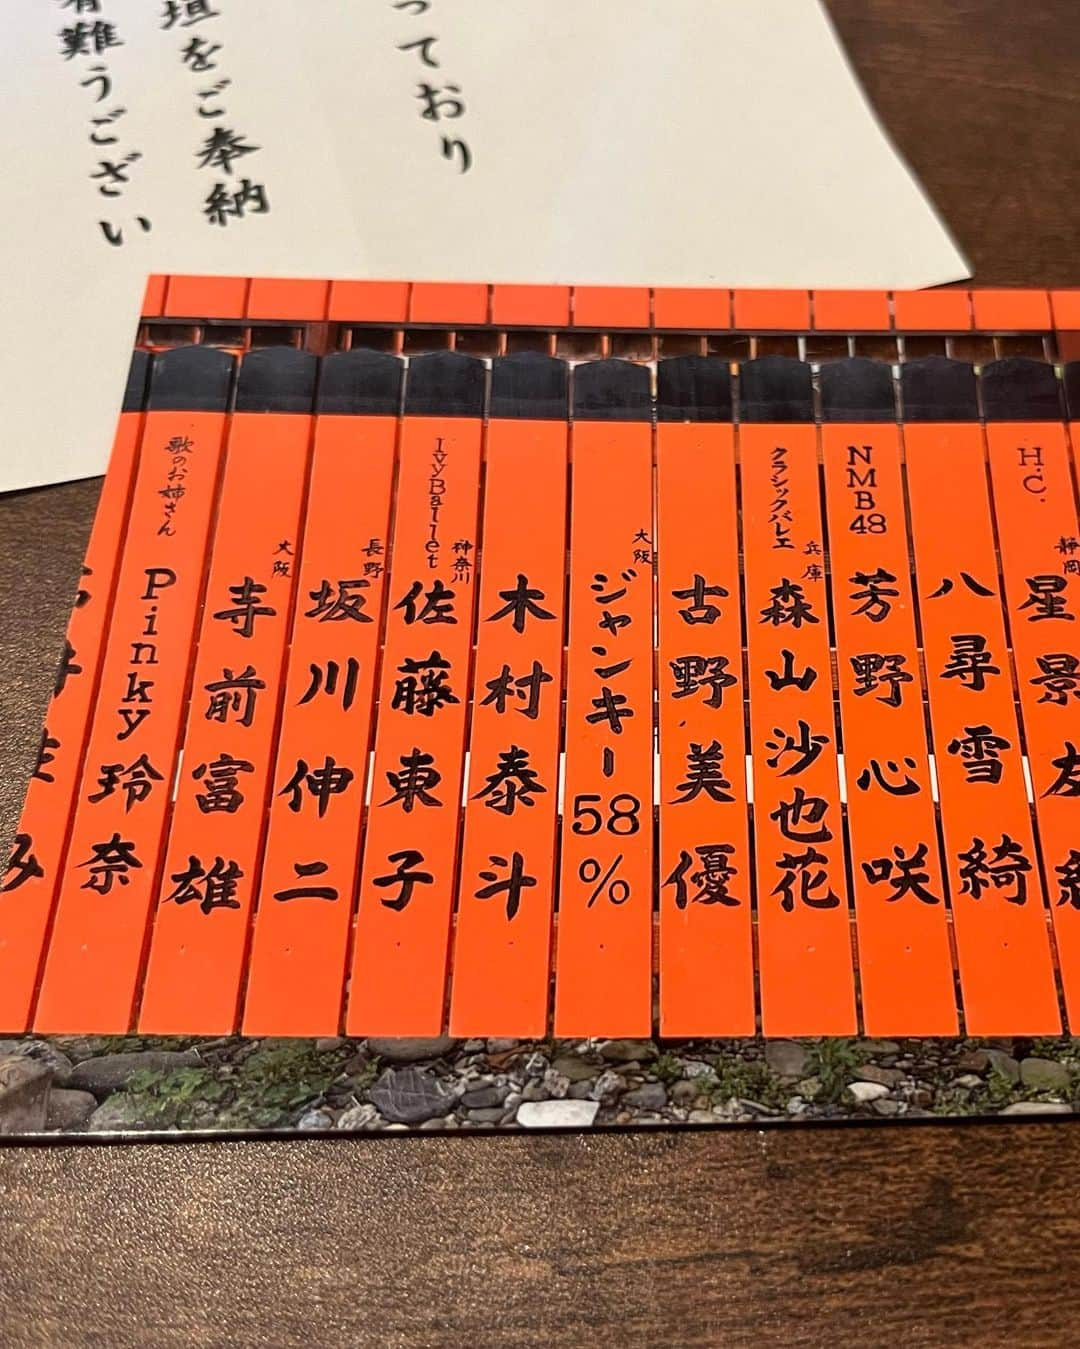 っており
垣をご奉納
有難うござい
H.C.
静岡
星景友
八尋雪綺
NMB48
芳野心咲
クラシックバレエ
兵庫
森山沙也花
古野美優
大阪
ジャンキー58%
木村泰斗
IvyBallet
神奈川
佐藤東子
長野
坂川伸二
大阪
寺前富雄
歌のお姉さん
Pinky玲奈
み